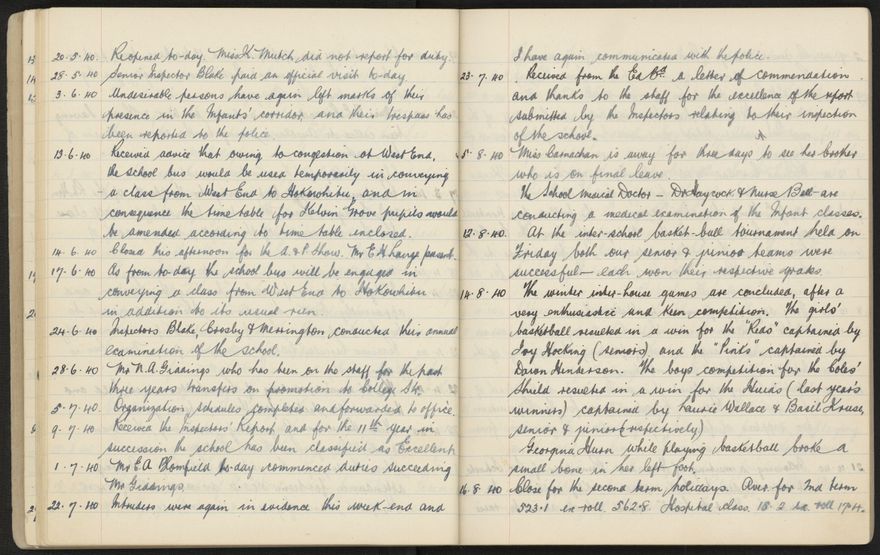 20·5·40 Reopened to-day. Miss K. Mutch did not report for duty.
28·5·40 Senior Inspector Blake paid an official visit to-day
3·6·40 Undesirable persons have again left marks of their
presence in the Infants' corridor and their trespass has
been reported to the police.
13·6·40 Received advice that owing to congestion at West End,
the school bus would be used temporarily in conveying
a class from West End to Hokowhitu, and in
consequence the time table for Kelvin Grove pupils would
be amended according to time table enclosed.
14·6·40 Closed this afternoon for the A. & P. Show. Mr E H Lange present.
17·6·40 As from to-day the school bus will be engaged in
conveying a class from West End to Hokowhitu
in addition to its usual run.
24·6·40 Inspectors Blake, Crosby & Merrington, conducted their annual
examination of the school.
28·6·40 Mr N. A. Giddings who has been on the staff for the past
three years transfers on promotion to College St.
5·7·40. Organisation schedules completed and forwarded to office.
9·7·40 Received the Inspectors' Report and for the 11th year in
succession the school has been classified as Excellent
1·7·40 Mr E A Blomfield to-day commenced duties succeeding
Mr Giddings.
22·7·40 Intruders were again in evidence this week-end and
I have again communicated with the police.
23·7·40 Received from the Ed Bd a letter of commendation
and thanks to the staff for the excellence of the report
submitted by the Inspectors relating to their inspection
of the school.
5·8·40 Miss Carnachan is away for three days to see her brother
who is on final leave.
The School Medical Doctor – Dr Haycock & Nurse Bell – are
conducting a medical examination of the Infant classes.
12·8·40. At the inter-school basket-ball tournament held on
Friday both our senior & junior teams were
successful – each won their respective grades.
14·8·40 The winter inter-house games are concluded, after a
very enthusiastic and keen competition. The girls'
basketball resulted in a win for the "Reds" captained by
Ivy Hocking (seniors) and the "Pinks" captained by
Dawn Henderson. The boys competition for the Coles'
Shield resulted in a win for the Huias (last year's
winners) captained by Laurie Wallace & Basil Kruse,
senior & junior (respectively)
Georgina Hurn while playing basketball broke a
small bone in her left foot.
16·8·40 Close for the second term holidays. Aver. for 2nd term
523·1 ex roll 562·8. Hospital class. 13·2 ex roll 17·4.